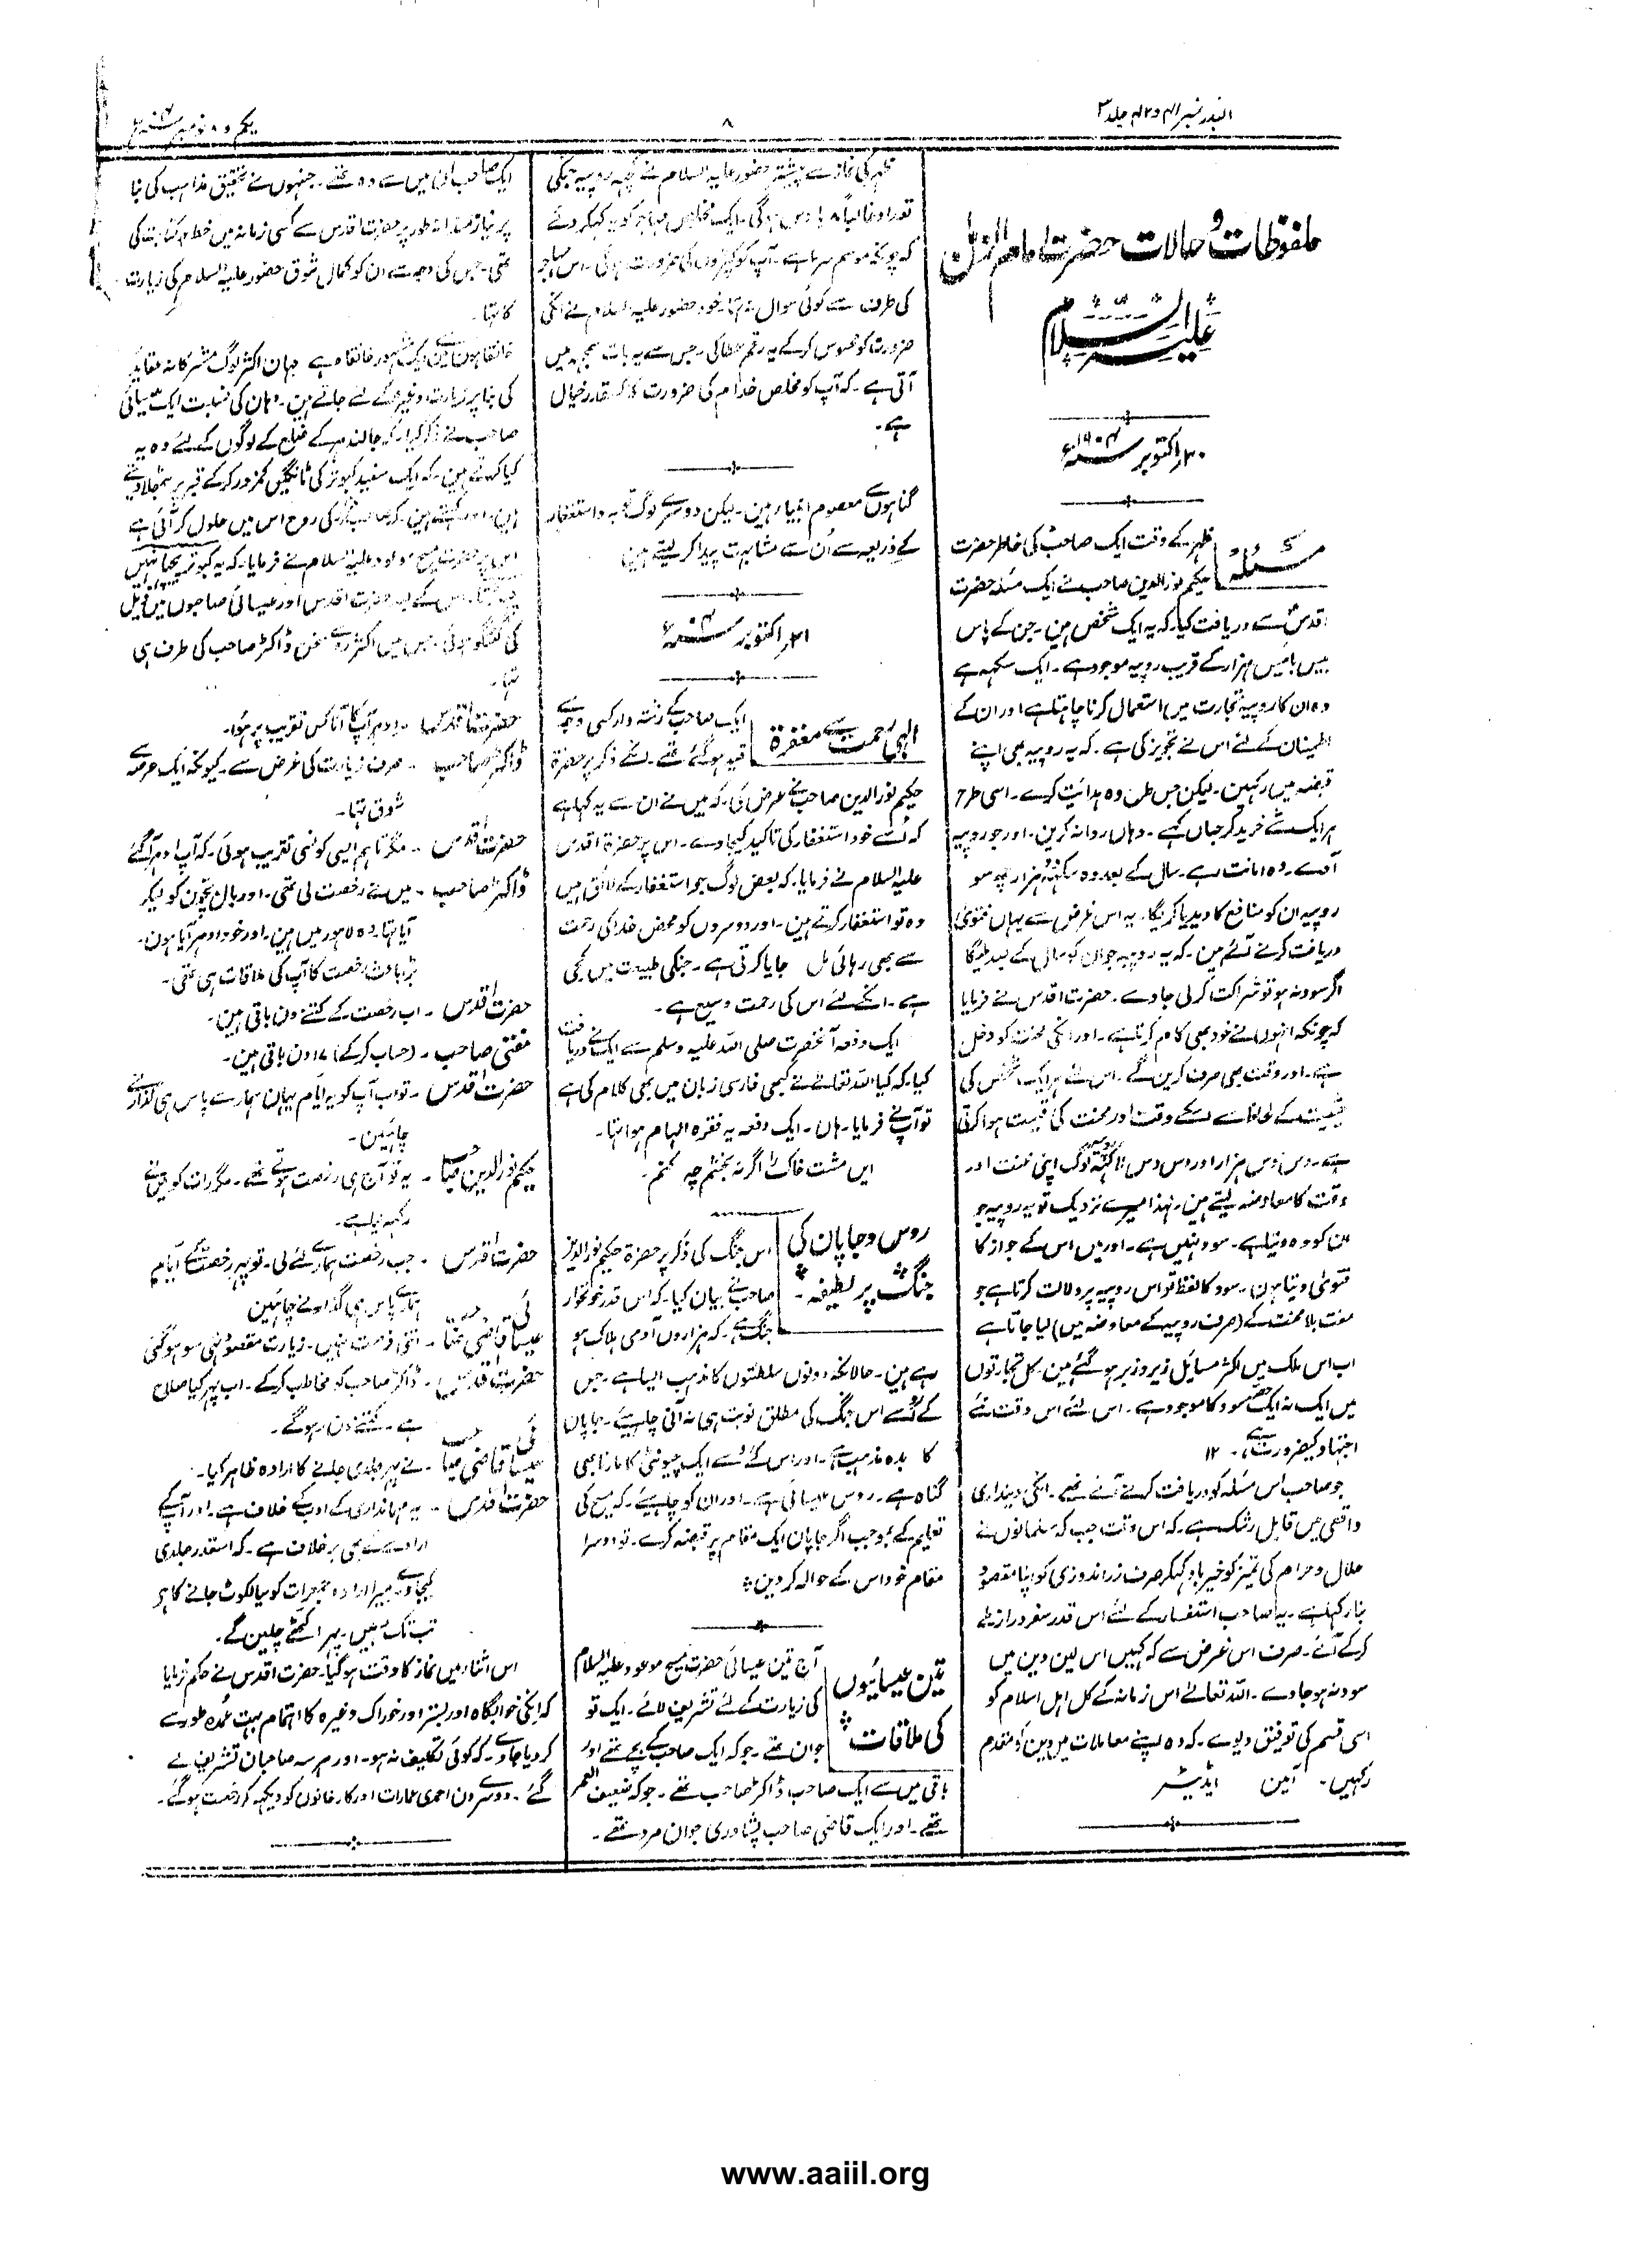 البدر نمبر ۴۱ و ۴۲ جلد ۳
۸
یکم و ۸ نومبر سنہ ۱۹۰۴ء
ملفوظات و حالات حضرت امام الزمان
علیہ السلام
۲۰ اکتوبر سنہ ۱۹۰۴ء
مسئلہ
ظہر کے وقت ایک صاحب کی خاطر حضرت
حکیم نورالدین صاحب نے ایک مسئلہ حضرت
اقدس سے دریافت کیا۔ کہ یہ ایک شخص ہین۔ جن کے پاس
بیس بائیس ہزار کے قریب روپیہ موجود ہے۔ ایک سکہہ ہے
وہ ان کا روپیہ تجارت میں استعمال کرنا چاہتا ہے اور ان کے
اطمینان کے لئے اس نے تجویز کی ہے۔ کہ یہ روپیہ بھی اپنے
قبضہ میں رکہین۔ لیکن جس طرح وہ ہدایت کرے۔ اسی طرح
ہر ایک شے خرید کر جہاں کہے۔ وہاں روانہ کرین۔ اور جو روپیہ
آوے۔ وہ امانت رہے۔ سال کے بعد وہ سکہہ دو ہزار چہہ سو
روپیہ ان کو منافع کا دیدیا کریگا۔ یہ اس غرض سے یہاں فتویٰ
دریافت کرنے آئے ہین۔ کہ یہ روپیہ جو ان کو سال کے بعد ملیگا
اگر سود نہ ہو تو شراکت کرلی جاوے۔ حضرت اقدس نے فرمایا
کہ چونکہ انہوں نے خود بھی کام کرنا ہے۔ اور انکی محنت کو دخل
ہے۔ اور وقت بھی صرف کرین گے۔ اس لئے ہر ایک شخص کی
حیثیت کے لحاظ سے اسکے وقت اور محنت کی قیمت ہوا کرتی
ہے۔ دس دس ہزار اور دس دس لاکہہ روپیہ لوگ اپنی محنت اور
وقت کا معاوضہ لیتے ہین۔ لہذا میرے نزدیک تو یہ روپیہ جو
ان کو وہ دیتا ہے۔ سود نہیں ہے۔ اور میں اس کے جواز کا
فتویٰ دیتا ہون۔ سود کا لفظ تو اس روپیہ پر دلالت کرتا ہے جو
مفت بلا محنت کے (صرف روپیہ کے معاوضہ میں) لیا جاتا ہے
اب اس ملک میں اکثر مسائیل زیر و زبر ہو گئے ہین۔ کل تجارتوں
میں ایک نہ ایک حصہ سود کا موجود ہے۔ اس لئے اس وقت نئے
اجتہاد کی ضرورت ہے۔ ۱۲
جو صاحب اس مسئلہ کو دریافت کرنے آئے تھے۔ انکی دینداری
واقعی میں قابل رشک ہے۔ کہ اس وقت جب کہ مسلمانوں نے
حلال و حرام کی تمیز کو خیر باد کہکر صرف زر اندوزی کو اپنا مقصود
بنا رکہا ہے۔ یہ صاحب استفسار کے لئے اس قدر سفر دراز طے
کر کے آئے۔ صرف اس غرض سے کہ کہیں اس لین دین میں
سود نہ ہو جاوے۔ اللہ تعالیٰ اس زمانہ کے کل اہل اسلام کو
اسی قسم کی توفیق دیوے۔ کہ وہ اپنے معاملات میں دین کو مقدم
رکہیں۔ آمین ایڈیٹر
ظہر کی نماز سے پیشتر حضور علیہ السلام نے کچہہ روپیہ جنکی
تعداد غالباً ۸ یا دس ہو گی۔ ایک مخلص مہاجر کو یہ کہکر دئے
کہ چونکہ موسم سرما ہے۔ آپ کو کپڑوں کی ضرورت ہو گی۔ اس مہاجر
کی طرف سے کوئی سوال نہ تہا۔ خود حضور علیہ السلام نے انکی
ضرورت کو محسوس کر کے یہ رقم عطا کی۔ جس سے یہ بات سمجہہ میں
آتی ہے۔ کہ آپ کو مخلص خدام کی ضرورت کا کسقدر خیال
ہے۔
گناہوں سے معصوم انبیاء ہین۔ لیکن دوسرے لوگ توبہ و استغفار
کے ذریعہ سے اُن سے مشابہت پیدا کر لیتے ہین
۲۱ اکتوبر سنہ ۱۹۰۴ء
الہٰی رحمت سے مغفرۃ
ایک صاحب کے رشتہ دار کسی وجہ سے
قید ہو گئے تھے۔ انکے ذکر پر حضرۃ
حکیم نورالدین صاحب نے عرض کی۔ کہ میں نے ان سے یہ کہا ہے
کہ اُسے خود استغفار کی تاکید کیجاوے۔ اس پر حضرۃ اقدس
علیہ السلام نے فرمایا۔ کہ بعض لوگ جو استغفار کے لائق ہیں
وہ تو استغفار کرتے ہین۔ اور دوسروں کو محض خدا کی رحمت
سے بھی رہائی مل جایا کرتی ہے۔ جنکی طبیعت میں کجی
ہے۔ انکے لئے اس کی رحمت وسیع ہے۔
ایک دفعہ آنحضرت صلی اللہ علیہ وسلم سے ایک نے دریافت
کیا۔ کہ کیا اللہ تعالےٰ نے کبھی فارسی زبان میں بھی کلام کی ہے
تو آپ نے فرمایا۔ ہاں۔ ایک دفعہ یہ فقرہ الہام ہوا تہا۔
ایں مشت خاک را گر نہ بخشم چہ کنم۔
روس و جاپان کی
جنگ پر لطیفہ۔
اس جنگ کی ذکر پر حضرۃ حکیم نورالدین
صاحب نے بیان کیا۔ کہ اس قدر خونخوار
جنگ ہے۔ کہ ہزاروں آدمی ہلاک ہو
رہے ہین۔ حالانکہ دونوں سلطنتوں کا مذہب ایسا ہے۔ جس
کے رُو سے اس جنگ کی مطلق نوبت ہی نہ آنی چاہیئے۔ جاپان
کا بدہ مذہب ہے۔ اور اس کے رُو سے ایک چیونٹی کا مارنا بھی
گناہ ہے۔ روس عیسائی ہے۔ اور ان کو چاہیئے۔ کہ مسیح کی
تعلیم کے بموجب اگر جاپان ایک مقام پر قبضہ کرے۔ تو دوسرا
مقام خود اس کے حوالہ کردین
تین عیسائیوں
کی ملاقات
آج تین عیسائی حضرت مسیح موعود علیہ السلام
کی زیارت کے لئے تشریف لائے۔ ایک تو
جوان تھے۔ جو کہ ایک صاحب کے بچے تھے اور
باقی میں سے ایک صاحب ڈاکٹر صاحب تھے۔ جو کہ ضعیف العمر
تھے۔ اور ایک قاضی صاحب پشاوری جوان مرد تھے۔
ایک صاحب ان میں سے وہ تھے۔ جنہوں نے تحقیق مذاہب کی بنا
پر نیازمندانہ طور پر حضرت اقدس سے کسی زمانہ میں خط و کتابت کی
تھی۔ جس کی وجہ سے ان کو کمال شوق حضور علیہ السلام کی زیارت
کا تہا۔
خانقاہوں میں سے ایک مشہور خانقاہ ہے جہان اکثر لوگ مشرکانہ عقاید
کی بنا پر زیارت وغیرہ کے لئے جاتے ہین۔ وہان کی نسبت ایک عیسائی
صاحب نے ذکر کیا۔ کہ جالندہر کے ضلع کے لوگوں کے لئے وہ یہ
کیا کرتے ہین۔ کہ ایک سفید کبوتر کی ٹانگیں کمزور کر کے قبر پر بٹھلا دیتے
ہین۔ اور کہتے ہین۔ کہ صاحب قبر کی روح اس میں حلول کر آئی ہے
اس پر حضرت مسیح موعود علیہ السلام نے فرمایا۔ کہ یہ کبوتر پیچھا نہیں
چھوڑتا۔ اس کے بعد حضرت اقدس اور عیسائی صاحبوں میں ذیل
کی گفتگو ہوئی۔ جس میں اکثر روئے سخن ڈاکٹر صاحب کی طرف ہی
تہا۔
حضرت اقدس۔ ادہر آپ کا آنا کس تقریب پر ہُوا۔
ڈاکٹر صاحب۔ صرف زیارت کی غرض سے۔ کیونکہ ایک عرصہ سے
شوق تہا۔
حضرت اقدس۔ مگر تاہم ایسی کونسی تقریب ہوئی۔ کہ آپ ادہر آ گئے
ڈاکٹر صاحب۔ میں نے رخصت لی تھی۔ اور بال بچون کو لیکر
آیا تہا۔ وہ لاہور میں ہین۔ اور خود ادہر آیا ہون۔
بڑا باعث رخصت کا آپ کی ملاقات ہی تھی۔
حضرت اقدس۔ اب رخصت کے کتنے دن باقی ہین۔
مفتی صاحب۔ (حساب کر کے) ۱۷ دن باقی ہین۔
حضرت اقدس۔ تو اب آپ کو یہ ایام یہان ہمارے پاس ہی گذارنے
چاہئین۔
حکیم نورالدین صاحب۔ یہ تو آج ہی رخصت ہوتے تھے۔ مگر رات کو میں نے
رکہہ لیا ہے۔
حضرت اقدس۔ جب رخصت ہمارے لئے لی۔ تو پہر رخصت کے ایام
ہمارے پاس ہی گذارنے چاہئین
عیسائی قاضی صاحب۔ اتنی فرصت نہیں۔ زیارت مقصود تھی سو ہو گئی
حضرت اقدس۔ ڈاکٹر صاحب کو مخاطب کر کے۔ اب پہر کیا صلاح
ہے۔ کتنے دن رہو گے۔
عیسائی قاضی صاحب۔ نے پہر جلدی جانے کا ارادہ ظاہر کیا۔
حضرت اقدس۔ یہ مہانداری کے ادب کے خلاف ہے۔ اور آپ کے
ارادے سے بھی برخلاف ہے۔ کہ اسقدر جلدی
کیجاوے۔ میرا ارادہ جمعرات کو سیالکوٹ جانے کا ہے
تب تک رہیں۔ پہر اکٹھے چلین گے۔
اس اثناء میں نماز کا وقت ہو گیا۔ حضرت اقدس نے حکم فرمایا
کہ انکی خوابگاہ اور بستر اور خوراک وغیرہ کا اہتمام بہت عُمدہ طور سے
کر دیا جاوے۔ کہ کوئی تکلیف نہ ہو۔ اور ہر سہ صاحبان تشریف لے
گئے۔ دوسرے دن احمدی عمارات اور کارخانوں کو دیکہہ کر رخصت ہو گئے۔
www.aaiil.org